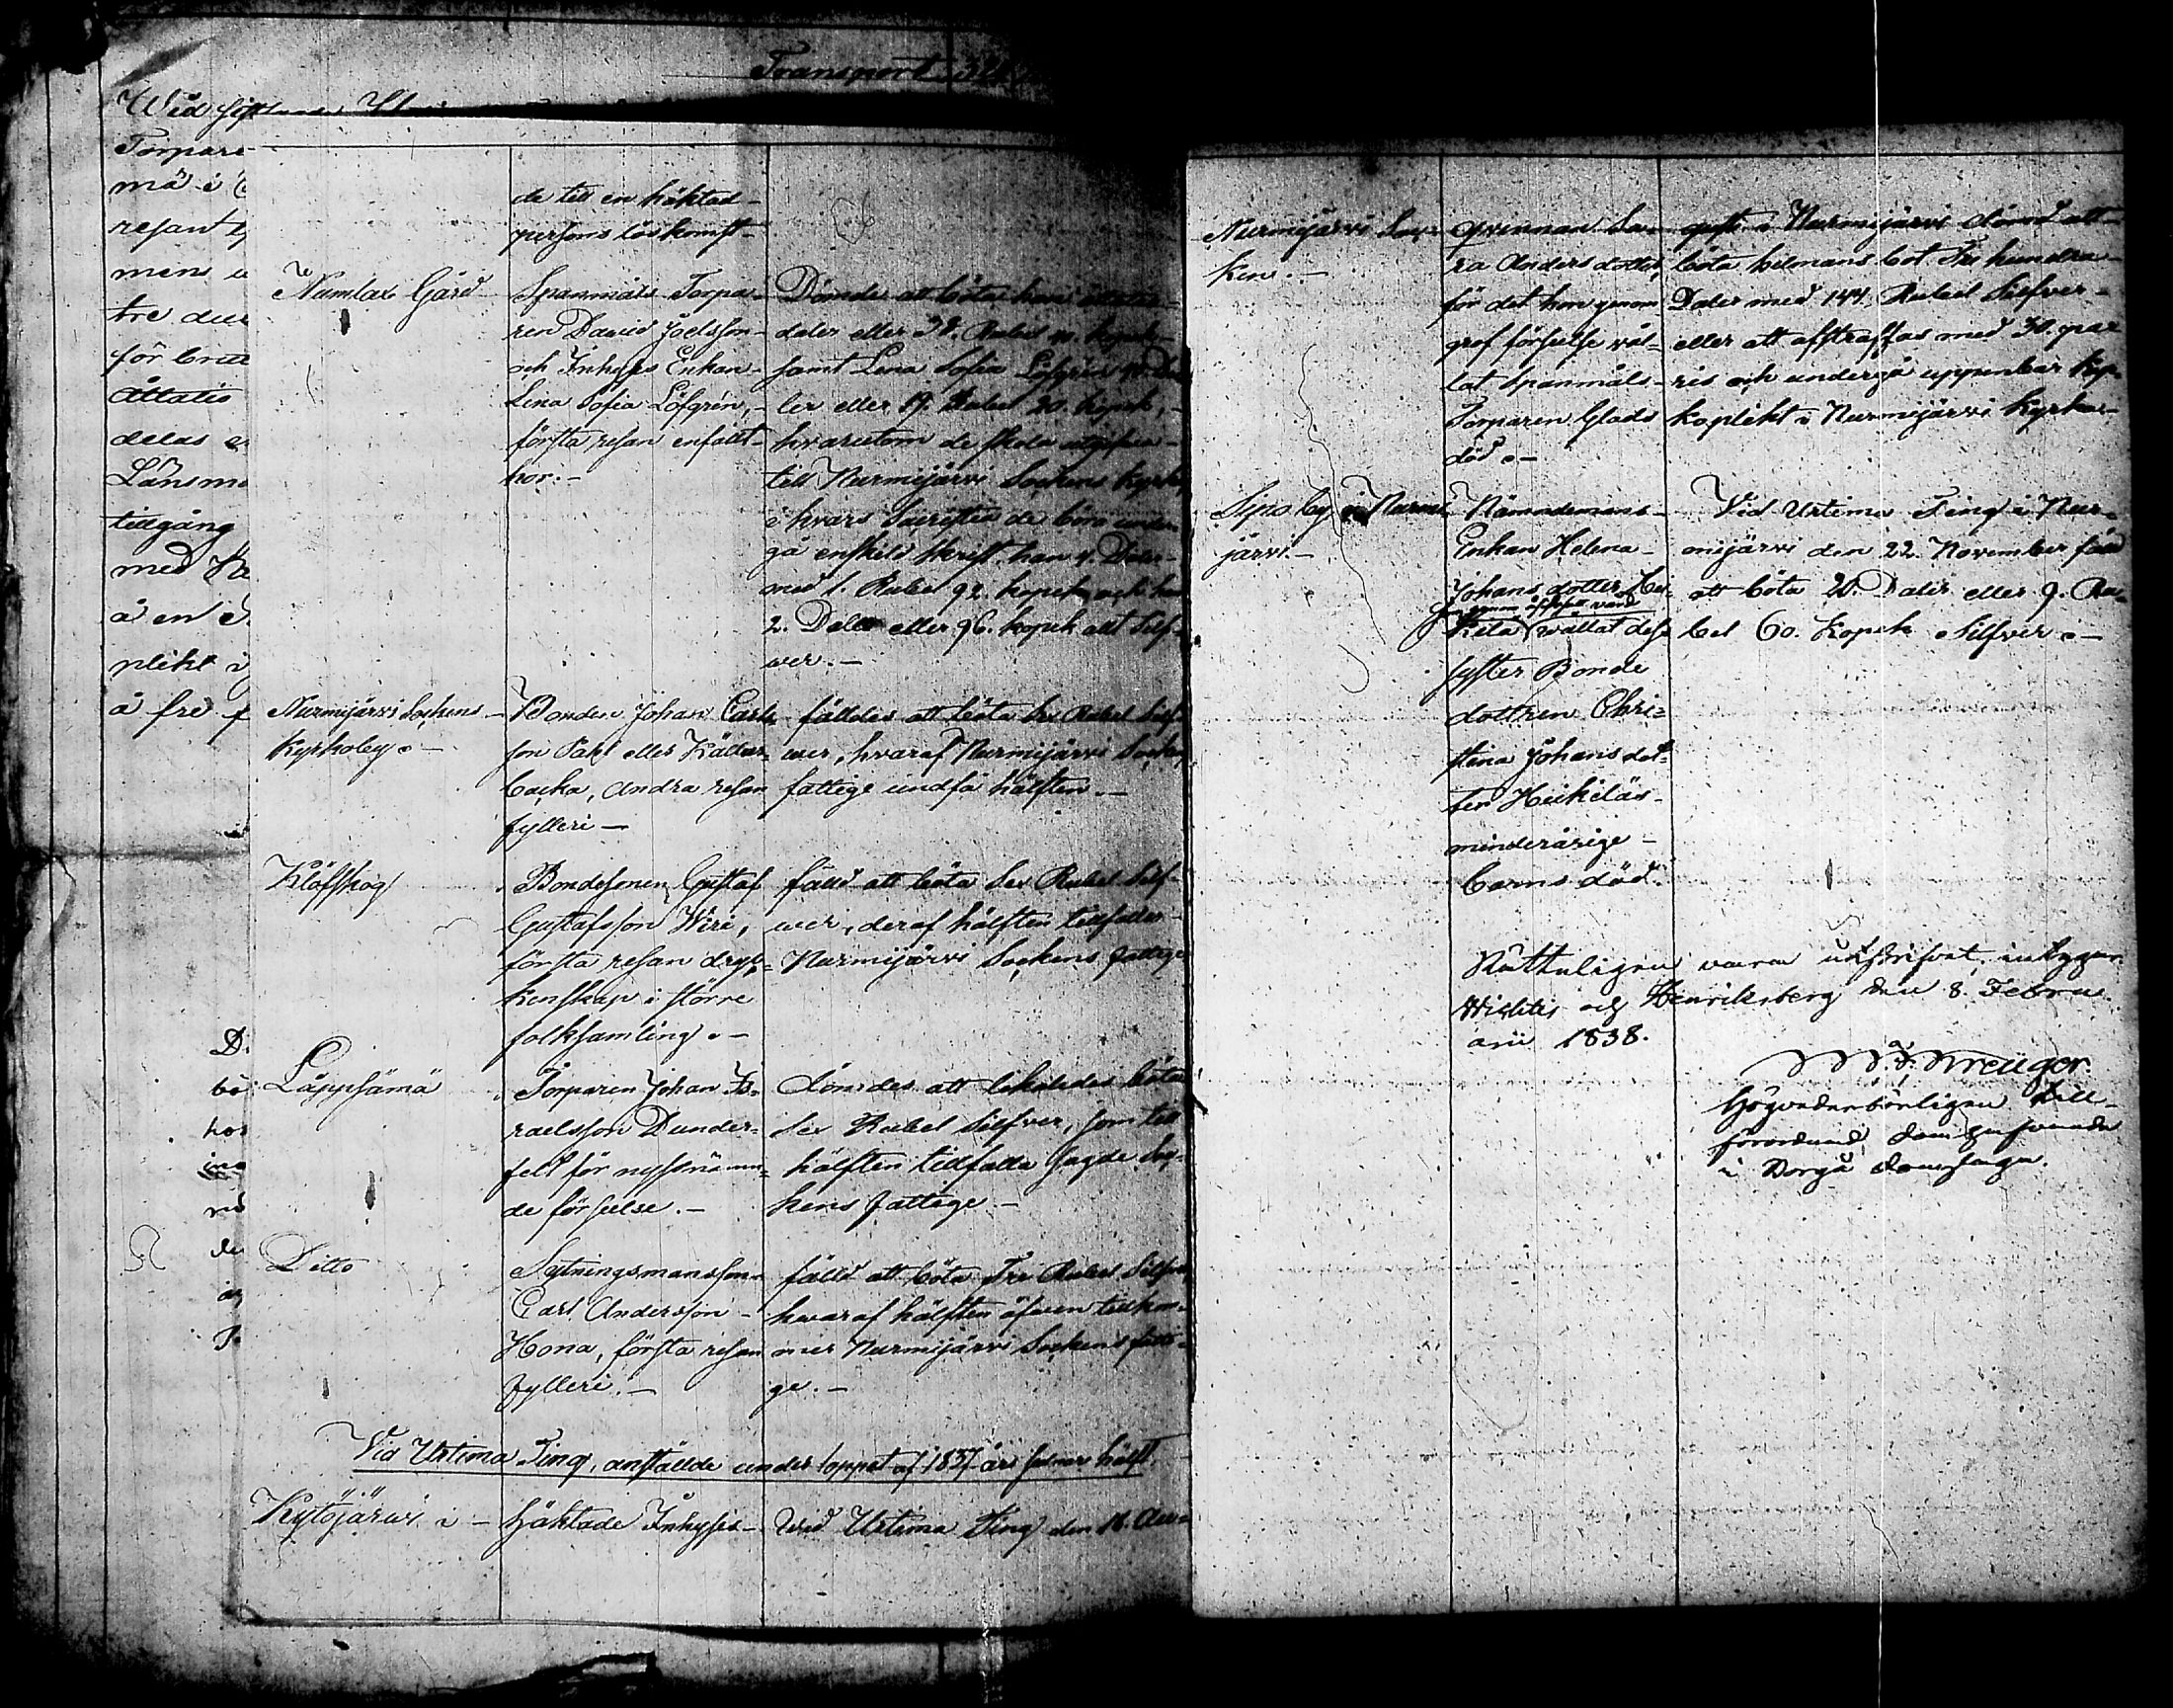 Transport
Wid
Torpare
mä i
resan
mens
tre
för
Åttatio
delas
Länsm
tillgång
med
å en
plikt i
å

de till en häktad
persons löskomst

Numlax Gård
Spanmåls Torpa-
ren David Joelsson
och Inhyses Enkan
Lena Sofia Löfgrén,
första resan enfalt
hor.-
Dömde att böta han
daler eller 38. Rubel 40. kopek
samt Lena Sofia Löfgrén 40 Da
ler eller 19. Rubel 20. kopek,
hvarutom de skola utgifva
till Nurmijärvi Sockens Kyrka,
i hvars Sacristia de böra under
gå enskild skrift, han 4. Daler
med 1. Rubel 92. kopek och hon
2. Daler eller 96. kopek allt Silf-
wer.-

Nurmijärvi Sockens
Kyrkoby.-
Bonden Johan Carls
son Parl eller Källar-
backa, andra resan
fylleri-
fälldes att böta Sex Rubel Silf-
wer, hvaraf Nurmijärvi Socken
fattige undfå hälften.-

Klöfskog
Bondesonen Gustaf
Gustafsson Wiri,
första resan dryc-
kenskap i större
folksamling.-
fälld att böta Sex Rubel Silf-
wer, deraf hälften tillfaller
Nurmijärvi Sockens fattige

Läppsämä
Torparen Johan Is-
raelsson Dunder-
felt för nyssnämn-
de förseelse.-
dömdes att likaledes böta
Sex Rubel Silfver, som till
hälften tillfalla sagde Soc-
kens fattige.-

Ditto
Sytningsmansson
Carl Andersson
Hona, första resan
fylleri.-
fälld att böta Tre Rubel Silfver
hvaraf hälften äfven tillkom-
mer Nurmijärvi Sockens fatti-
ge.-

Vid Urtima Ting, anställde under loppet af 1837 års senare hälft.

Kytöjärvi i
Häktade Inhyses-
Wid Urtima Ting den 16. Au-

Nurmijärvi Soc-
ken.-
qvinnan Sa-
ra Anders dotter,
för det hon genom
grof förseelse vål-
lat Spanmåls-
Torparen Glads
död.-
gusti i Nurmijärvi dömd att
böta helmans bot Tre hundra
Daler med 144. Rubel Silfver
eller att afstraffas med 30. par
ris och undergå uppenbar Kyr-
koplikt i Nurmijärvi Kyrka.-

Sipo by i Nurmi-
järvi.-
Nämndemans-
Enkan Helena
Johans dotter Hei-
kilä wållat dess
syster Bonde
dottren Chri-
stina Johans dot-
ter Heikiläs
minderårige
barns död.
Vid Urtima Ting i Nur-
mijärvi den 22. November fälld
att böta 20. Daler eller 9. Ru-
bel 60. Kopek Silfver.-

Rätteligen vara utskrifvet, intygar
Wichtis och Henriksberg den 8. Febru-
arii 1838.
Kreüger.
Högvederbörligen till-
förordnad domhafvande
i Borgå domsaga.